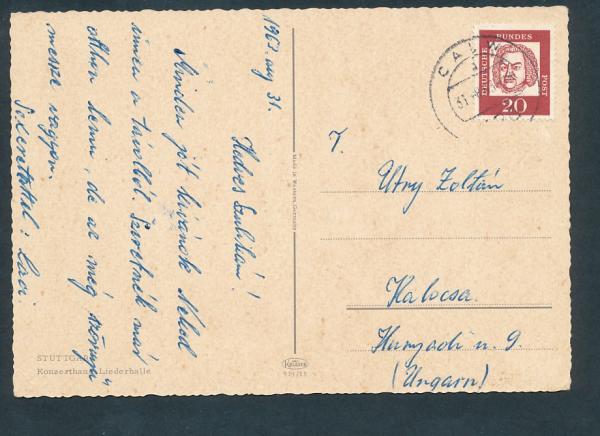 1963. aug 31.
Kedves Szulikám!
Minden jót kívánok Neked
innen a távolból. Szeretnék már
otthon lenni, de az még szörnyű
messze vagyon.
Szeretettel: Laci.
STUTTGART
Konzerthaus Liederhalle
Krüger
DEUTSCHE BUNDESPOST
20
CALW
T.
Utry Zoltán
Kalocsa.
Hunyadi u. 9.
(Ungarn)